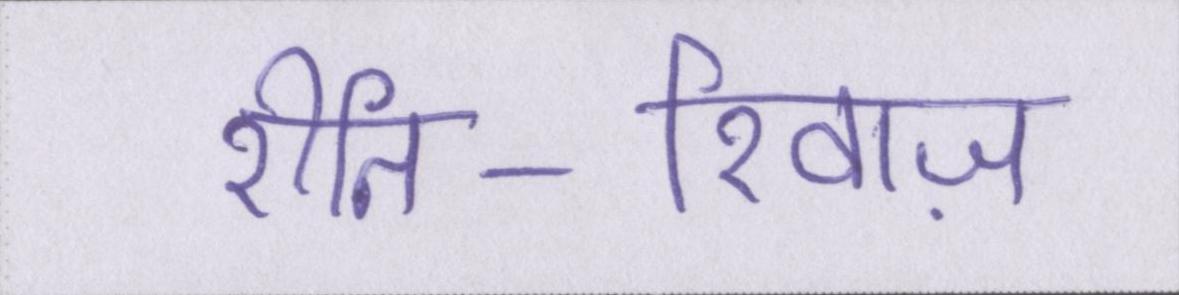 रीति - रिवाज़